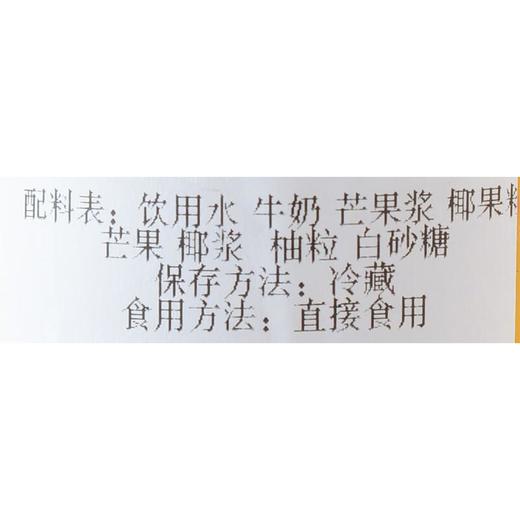 配料表：饮用水 牛奶 芒果浆 椰果粒
芒果 椰浆 柚粒 白砂糖
保存方法：冷藏
食用方法：直接食用